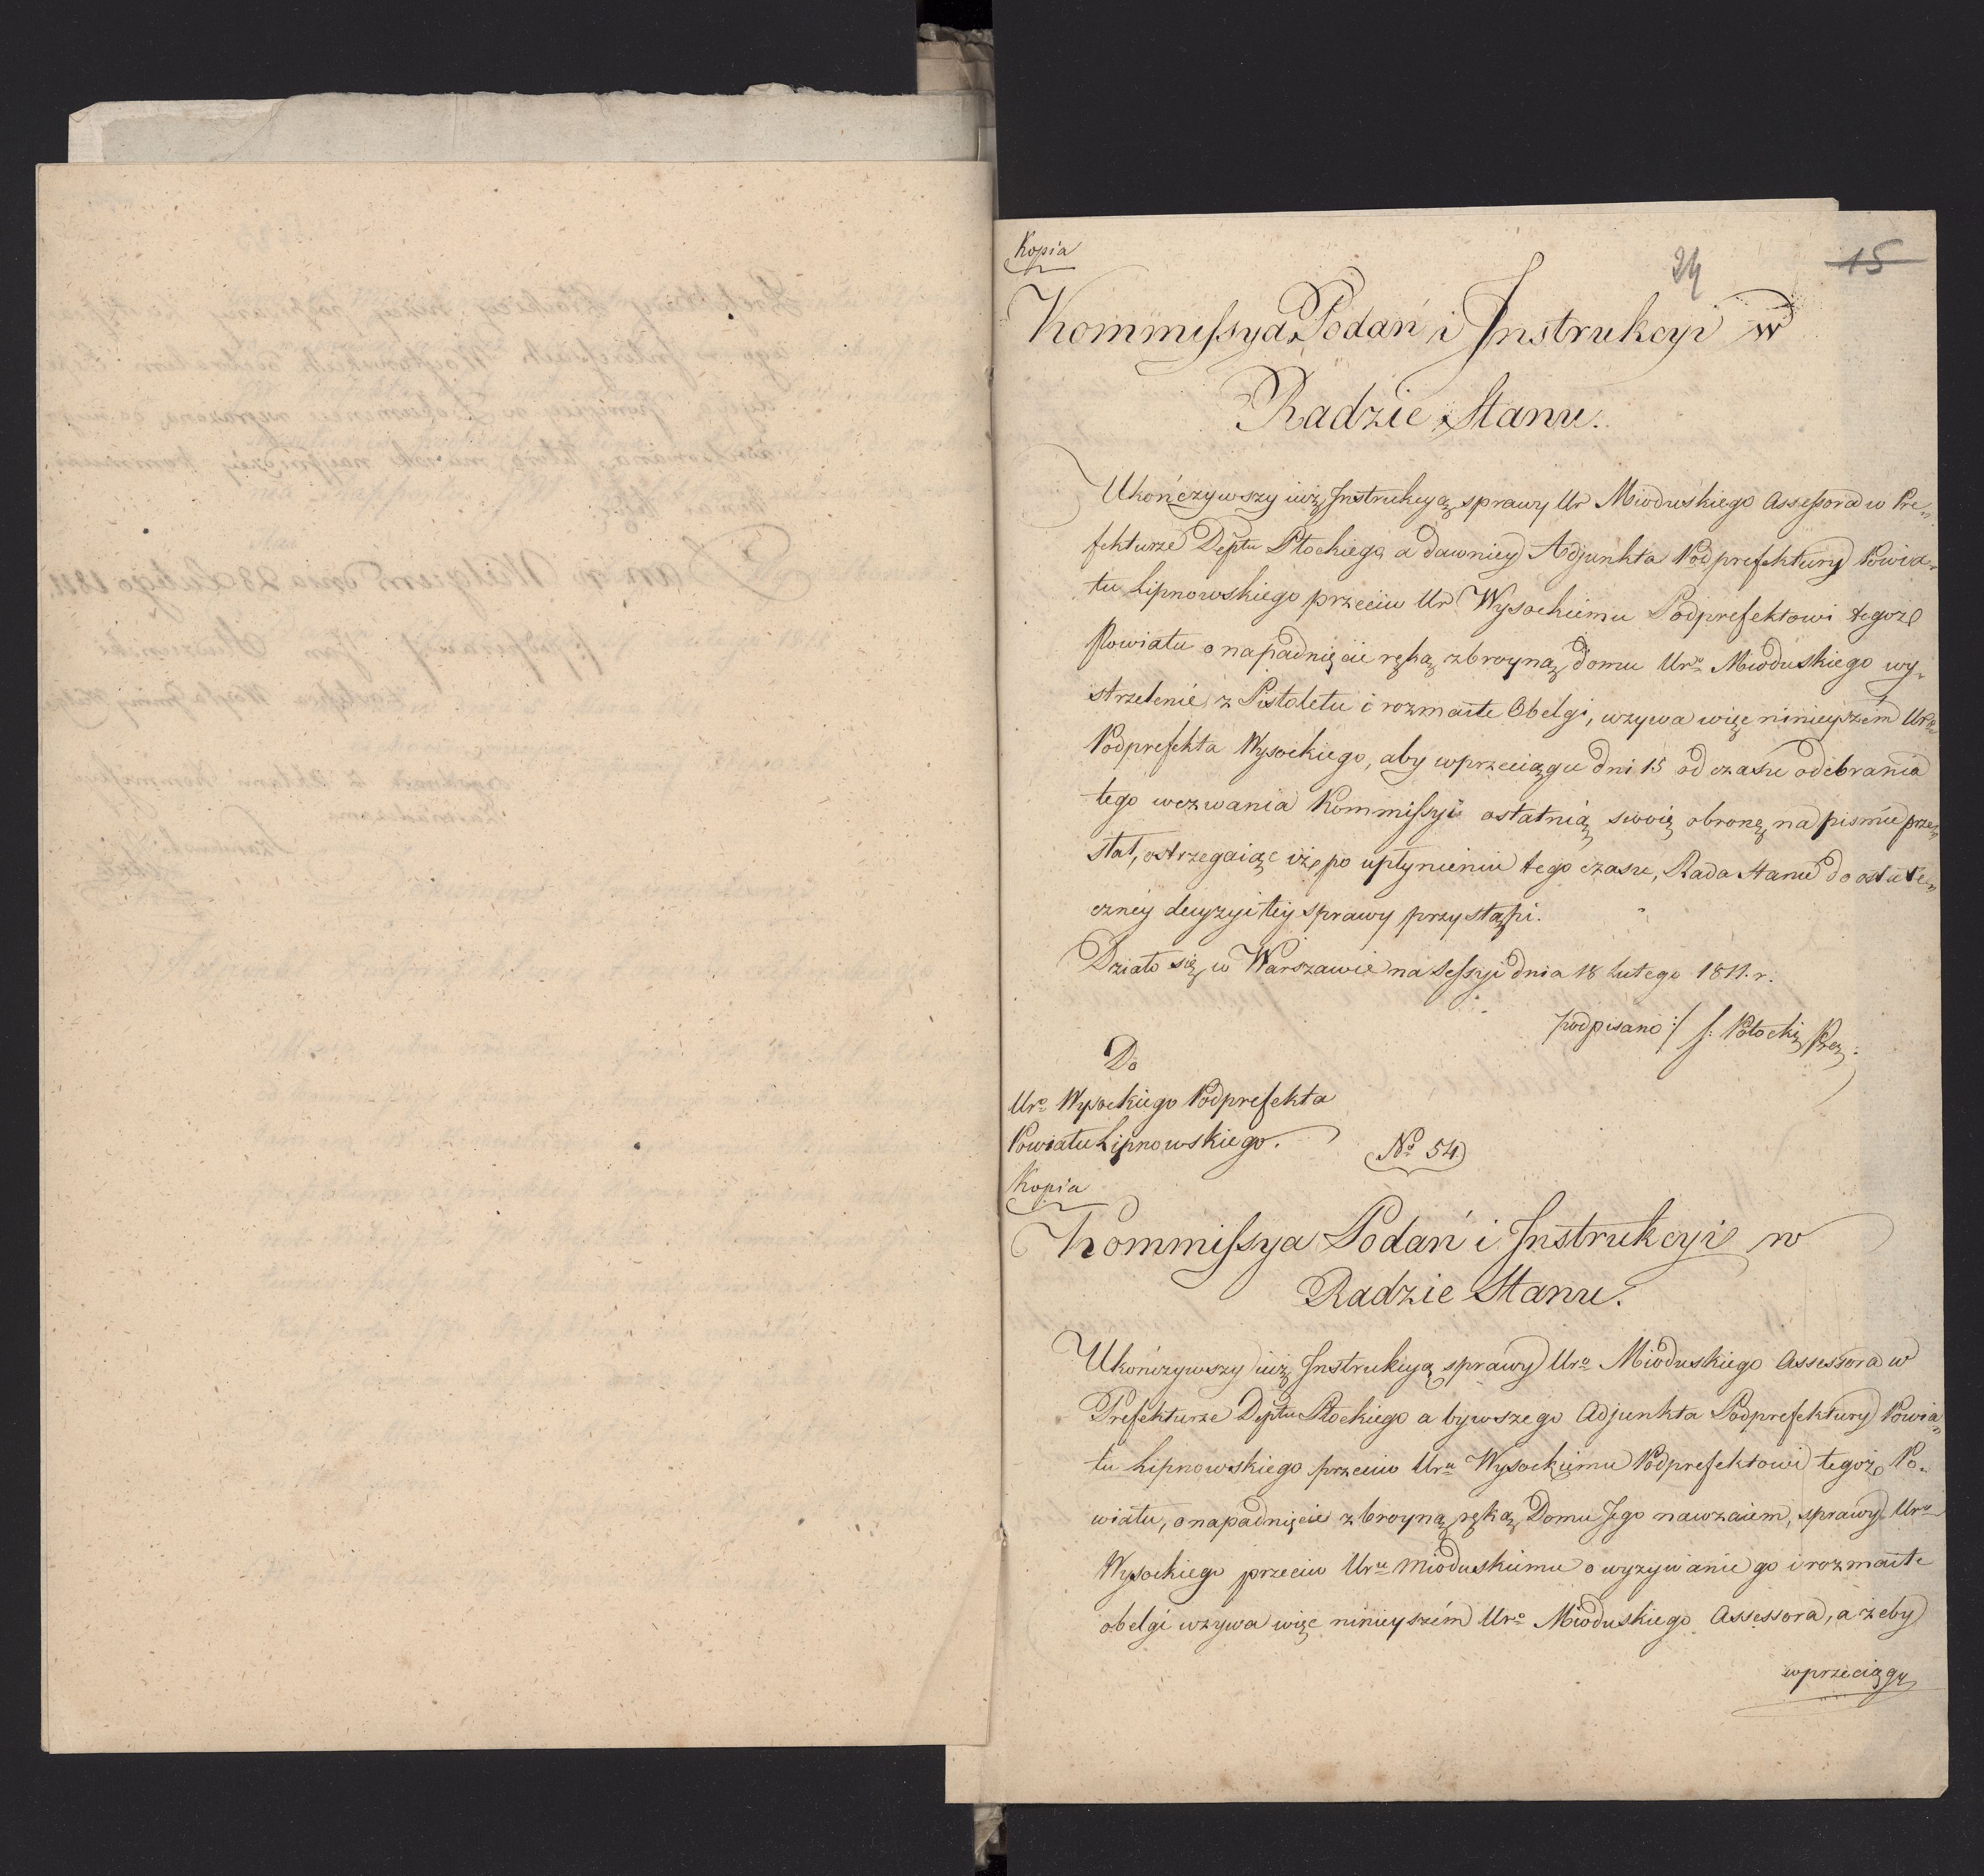 Kopia
24
15
Kommissya Podań i Instrukcyi w
Radzie Stanu.
Ukończywszy iuż Instrukcyą sprawy Ur Mioduskiego Assessora w Pre„
fekturze Deptu Płockiego, a dawniey Adjunkta Podprefektury Powia„
tu Lipnowskiego przeciw Ur Wysockiemu Podprefektowi tegoż
Powiatu o napadnięcie ręką zbroyną domu Uro Mioduskiego wy„
strzelenie z Pistoletu i rozmaite Obelgi, wzywa więc ninieyszem Uro
Podprefekta Wysockiego, aby wprzeciągu dni 15 od czasu odebrania
tego wezwania Kommissyi ostatnią swoię obronę na piśmie prze„
słał, ostrzegaiąc iż po upłynieniu tego czasu, Rada Stanu do ostate„
czney decyzyi tey sprawy przystąpi.
Działo się w Warszawie na Sessyi dnia 18 Lutego 1811. r.
podpisano:/ J: Potocki Prez:
Do
Uro Wysockiego Podprefekta
Powiatu Lipnowskiego.
No 54.
Kopia
Kommissya Podań i Instrukcyi w
Radzie Stanu.
Ukończywszy iuż Instrukcyą sprawy Uro Mioduskiego Assessora w
Prefekturze Deptu Płockiego a bywszego Adjunkta Podprefektury Powia„
tu Lipnowskiego przeciw Uru Wysockiemu Podprefektowi tegoż Po„
wiatu, o napadnięcie zbroyną ręką Domu Jego nawzaiem, sprawy Uro
Wysockiego przeciw Uru Mioduskiemu o wyzywanie go i rozmaite
obelgi wzywa więc ninieyszém Uro Mioduskiego Assessora, ażeby
wprzeciągu